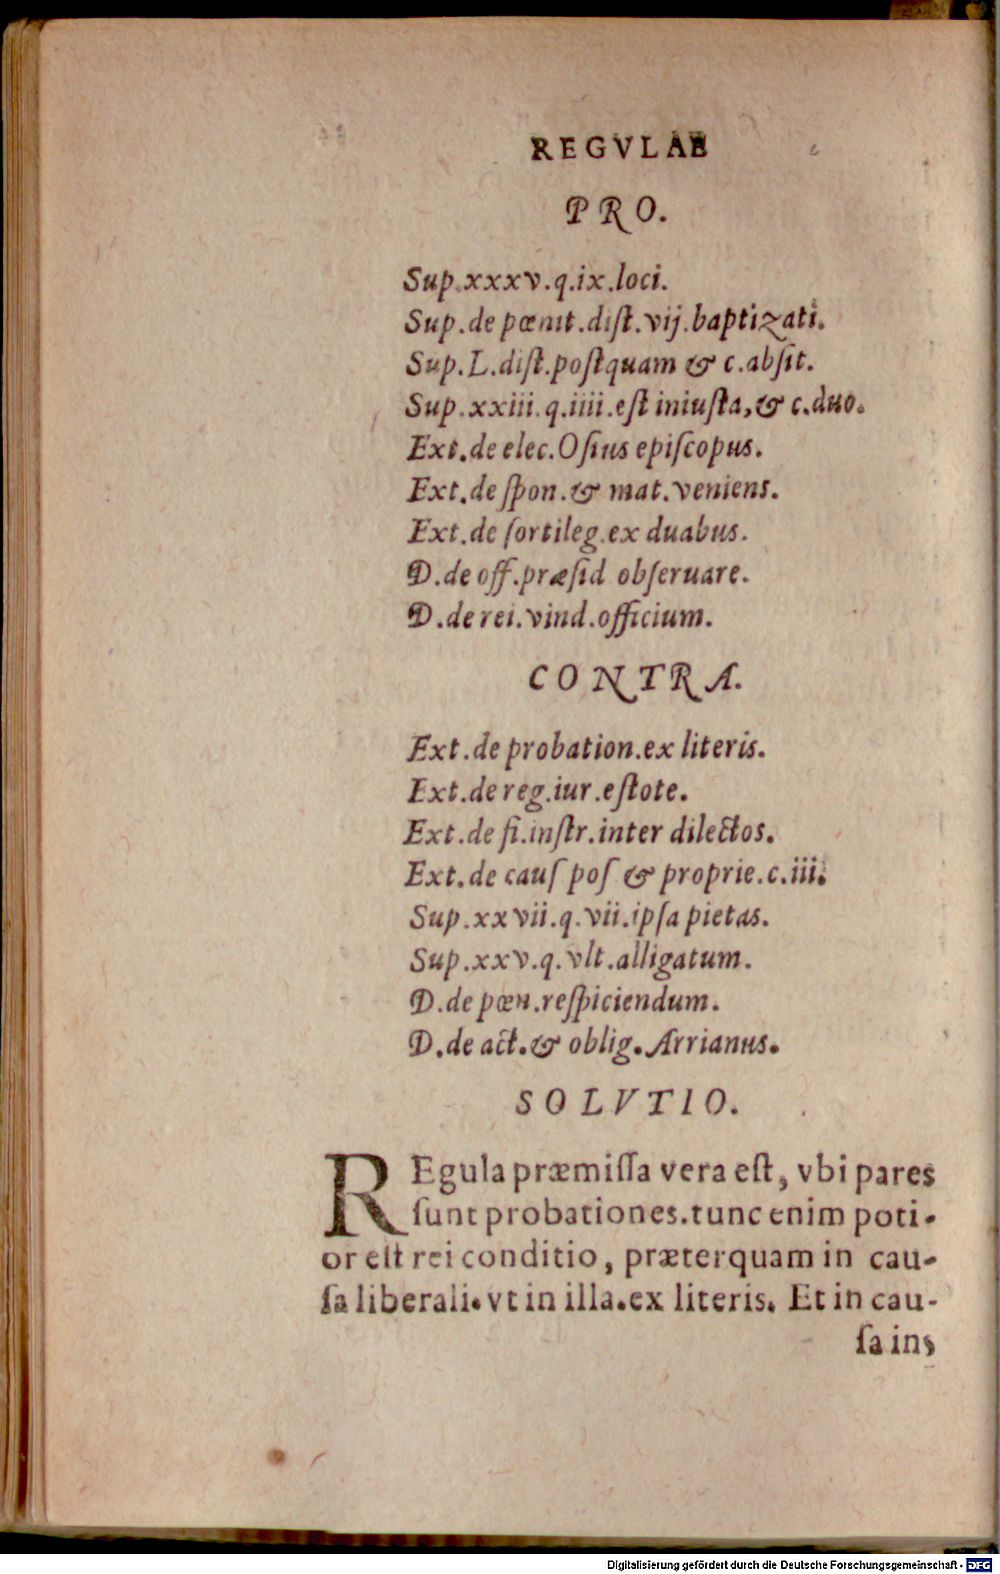 REGVLAE
PRO.
Sup.xxxv.q.ix.loci.
Sup.de pœnit.diſt.vij.baptizati.
Sup.L.diſt.poſtquam & c.abſit.
Sup.xxiii.q.iiii.eſt iniuſta,& c.duo.
Ext.de elec.Oſius epiſcopus.
Ext.de ſpon.& mat.veniens.
Ext.de ſortileg.ex duabus.
D.de off.præſid obſeruare.
D.de rei.vind.officium.
CONTRA.
Ext.de probation.ex literis.
Ext.de reg.iur.eſtote.
Ext.de fi.inſtr.inter dilectos.
Ext.de cauſ poſ & proprie.c.iii.
Sup.xxvii.q.vii.ipſa pietas.
Sup.xxv.q.vlt.alligatum.
D.de pœn.reſpiciendum.
D.de act.& oblig.Arrianus.
SOLVTIO.
REgula præmiſſa vera eſt, vbi pares
ſunt probationes.tunc enim poti-
or eſt rei conditio, præterquam in cau-
ſa liberali.vt in illa.ex literis. Et in cau-
ſa in,
Digitalisierung gefördert durch die Deutsche Forschungsgemeinschaft - DFG